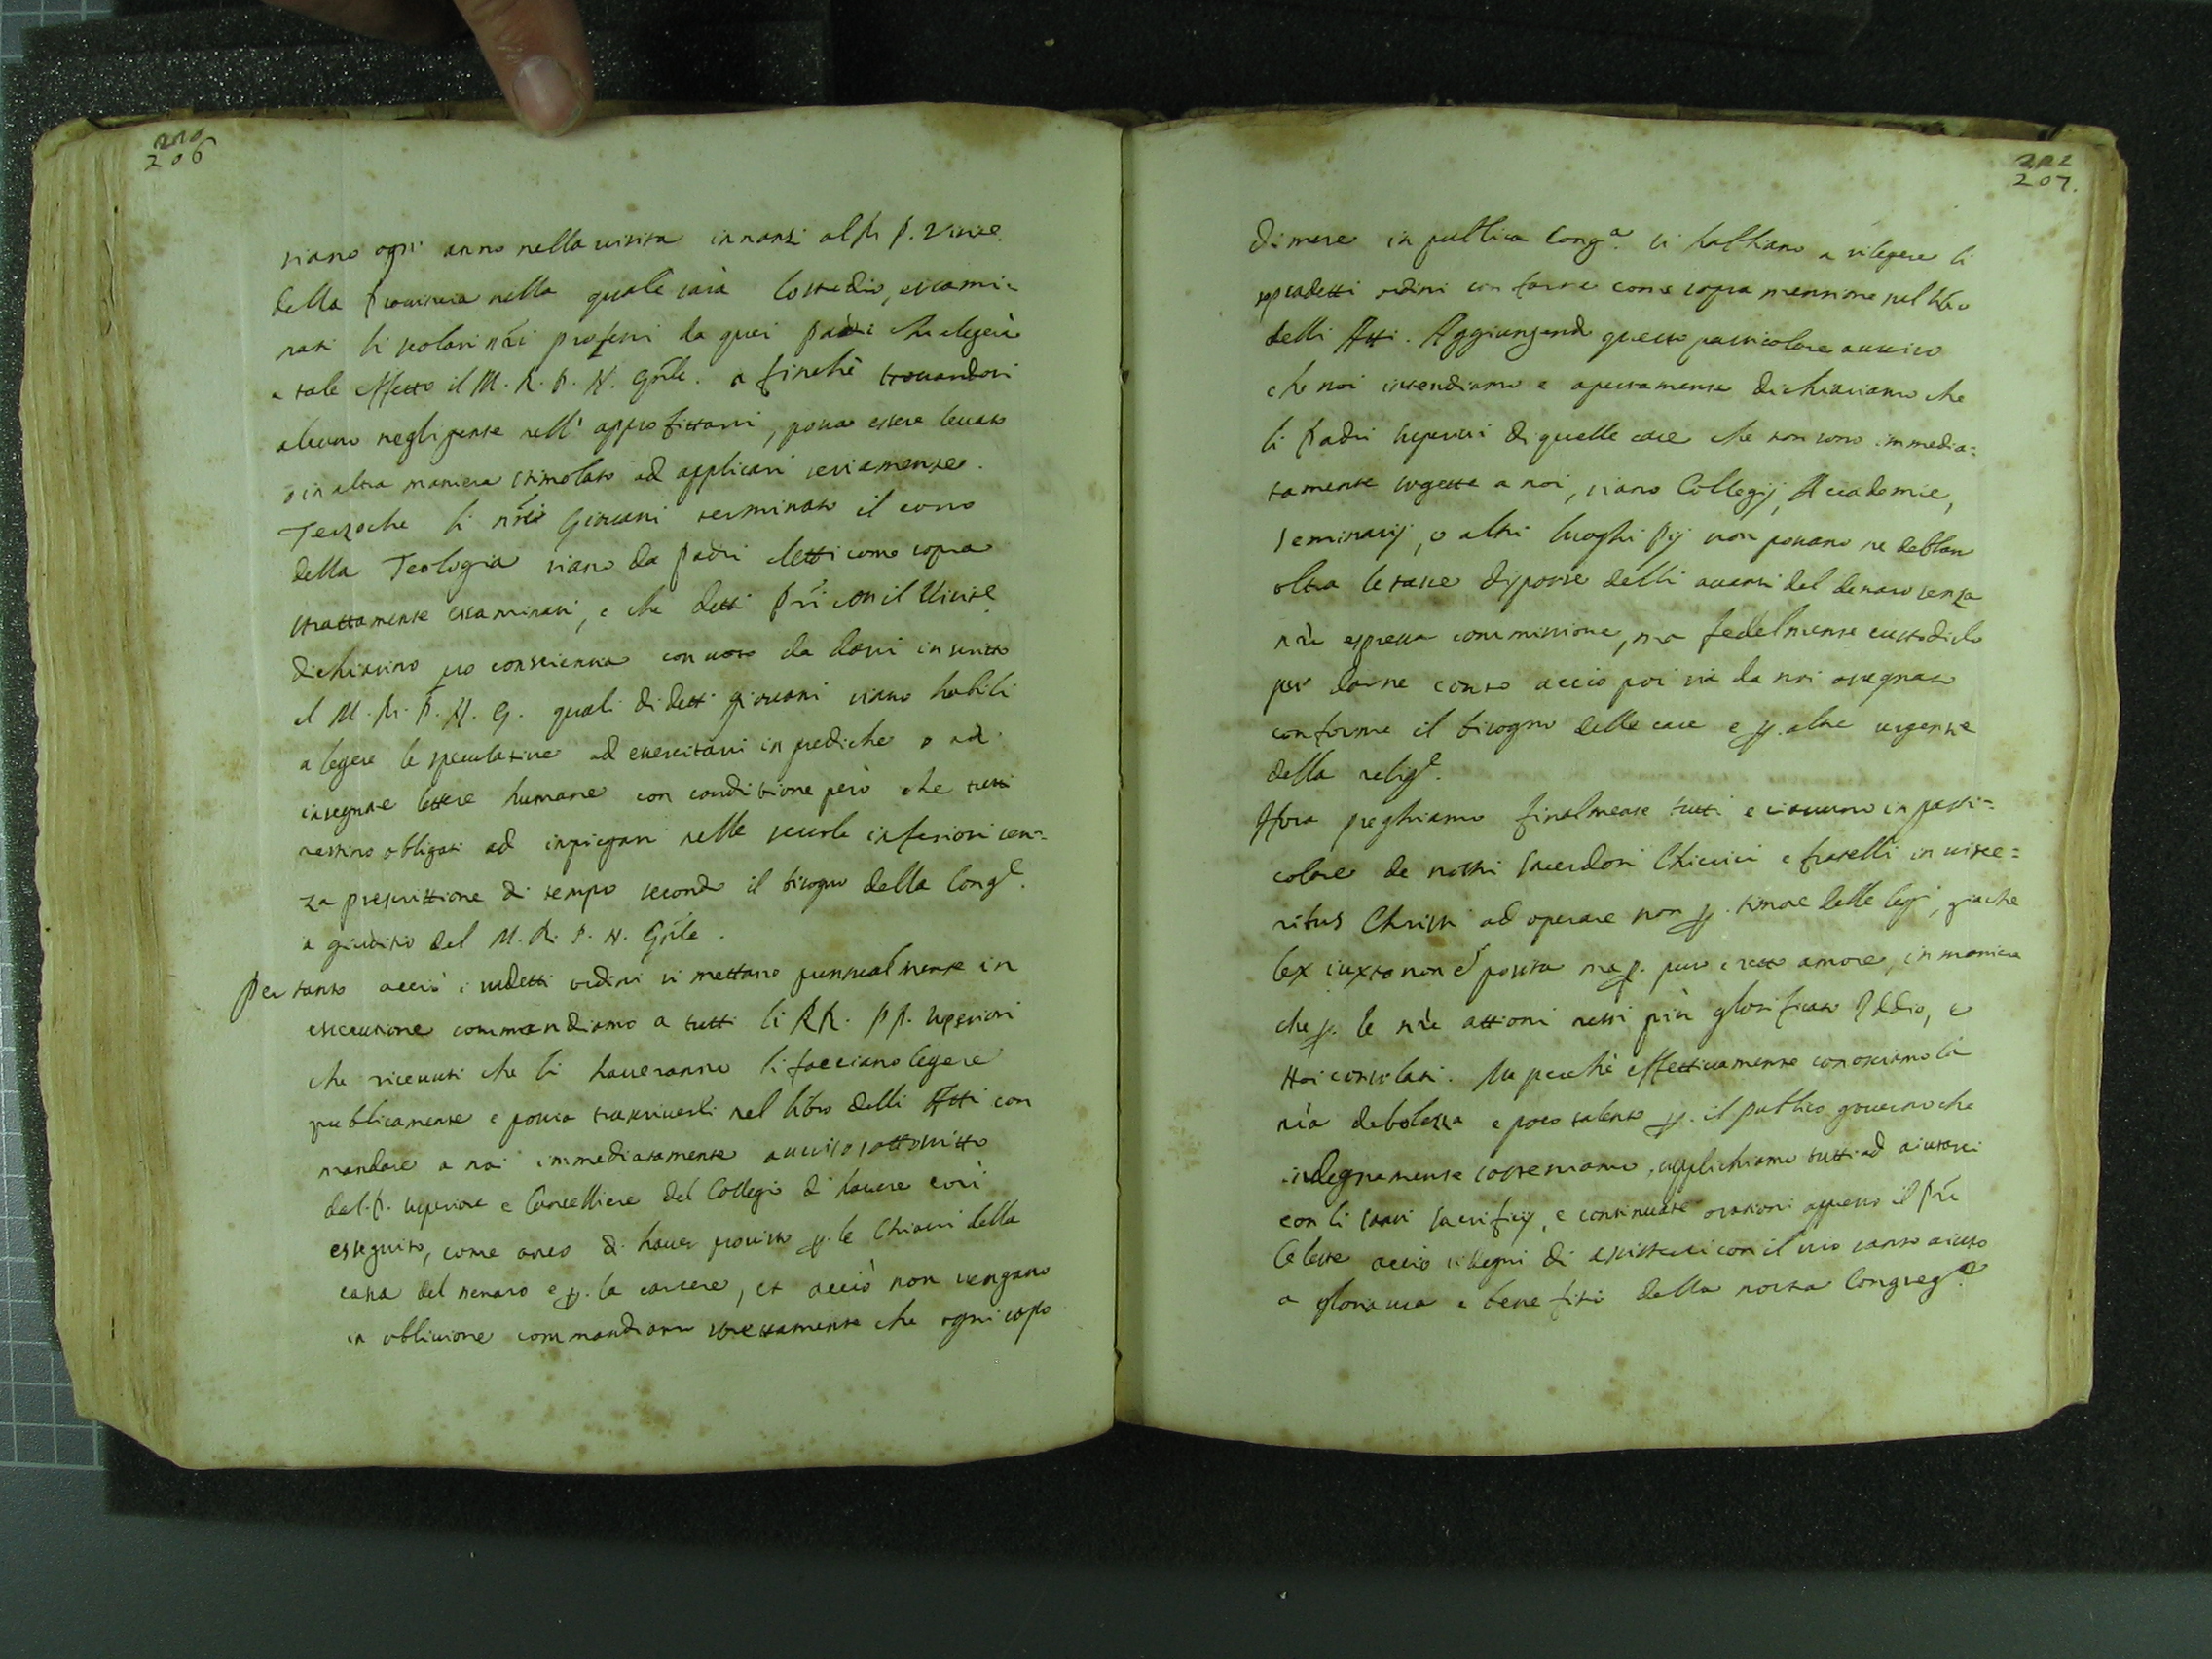 210
206
siano ogni anno nella visita innanzi al M. P. Visit.e
della Provincia nella quale sarà lo studio, essami-
nati li scolari nr̃i professi da quei Padri che elegerà
a tale effetto il M. R. P. N. Gñle. a finchè trovandosi
alcuno negligente nell' approfittarsi, possa essere levato
o in altra maniera stimolato ad applicarsi seriamente.
Terzo che li nr̃i Giovani terminato il corso
della Teologia siano da Padri eletti come sopra
strattamente essaminati, e che detti Pr̃i con il Visit.e
dichiarino pro conscientia con voto da darsi in scritto
al M. R. P. N. G. quali di detti giovani siano habili
a legere le speculative ad essercitarsi in prediche o ad
insegnare lettere humane con conditione però che tutti
restino obligati ad inpiegarsi nelle scuole inferiori sen-
za prescrittione di tempo secondo il bisogno della Cong.e
a giuditio del M. R. P. N. Gñle.
Per tanto acciò i sudetti ordini si mettano puntualmente in
essecutione commandiamo a tutti li RR. PP. Superiori
che ricevuti che li haveranno li facciano legere
publicamente e possia trascriverli nel libro delli Atti con
mandare a noi immediatamente avviso sottoscritto
dal P. Superiore e Cancelliere del Collegio di havere così
esseguito, come anco di haver provisto p. le Chiavi della
cassa del denaro e p. la carcere, et acciò non vengano
in oblivione commandiamo strettamente che ogni capo
212
207.
di mese in publica Cong.a si habbiano a rilegere li
sopradetti ordini con farne come sopra mentione nel libro
delli Atti. Aggiungendo questo particolare avviso
che noi intendiamo e apertamente dichiariamo che
li Padri superiori di quelle case che non sono immedia-
tamente sogette a noi, siano Collegij, Accademie,
Seminarij, o altri luoghi pij non possano ne debban
oltra le tasse disporre delli avanzi del denaro senza
nr̃a espressa commissione, ma fedelmente custodirlo
per darne conto acciò poi sia da noi assegnato
conforme il bisogno delle case e p. altre urgenze
della relig.e
Hora preghiamo finalmente tutti e ciascuno in parti-
colare de nostri Sacerdoti Chierici e fratelli in visce-
ribus Christi ad operare non p. timore delle legi, giache
lex iuxto non è posita ma p. puro e retto amore, in maniera
che p. le nr̃e attioni resti più glorificato Iddio, e
Noi consolati. Ma perchè effettivamente conosciamo la
nr̃a debolezza e poco talento p. il publico governo che
indegnamente sosteniamo, applichiamo tutti ad aiutarci
con li santi sacrificij, e continuate orationi appresso il Prẽ
Celeste acciò si degni di assisterci con il suo santo aiuto
a gloria sua e benefitio della nostra Congreg.e